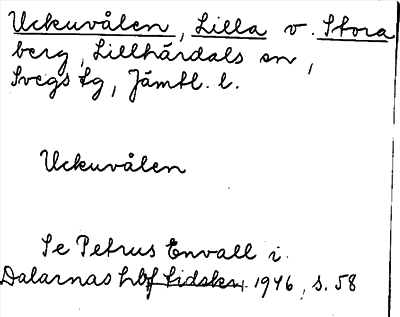 Uckuvålen, Lilla v. Stora
berg, Lillhärdals sn,
Svegs tg, Jämtl. l.
Uckuvålen
Se Petrus Envall i
Dalarnas hbf tidskr. 1946, s. 58